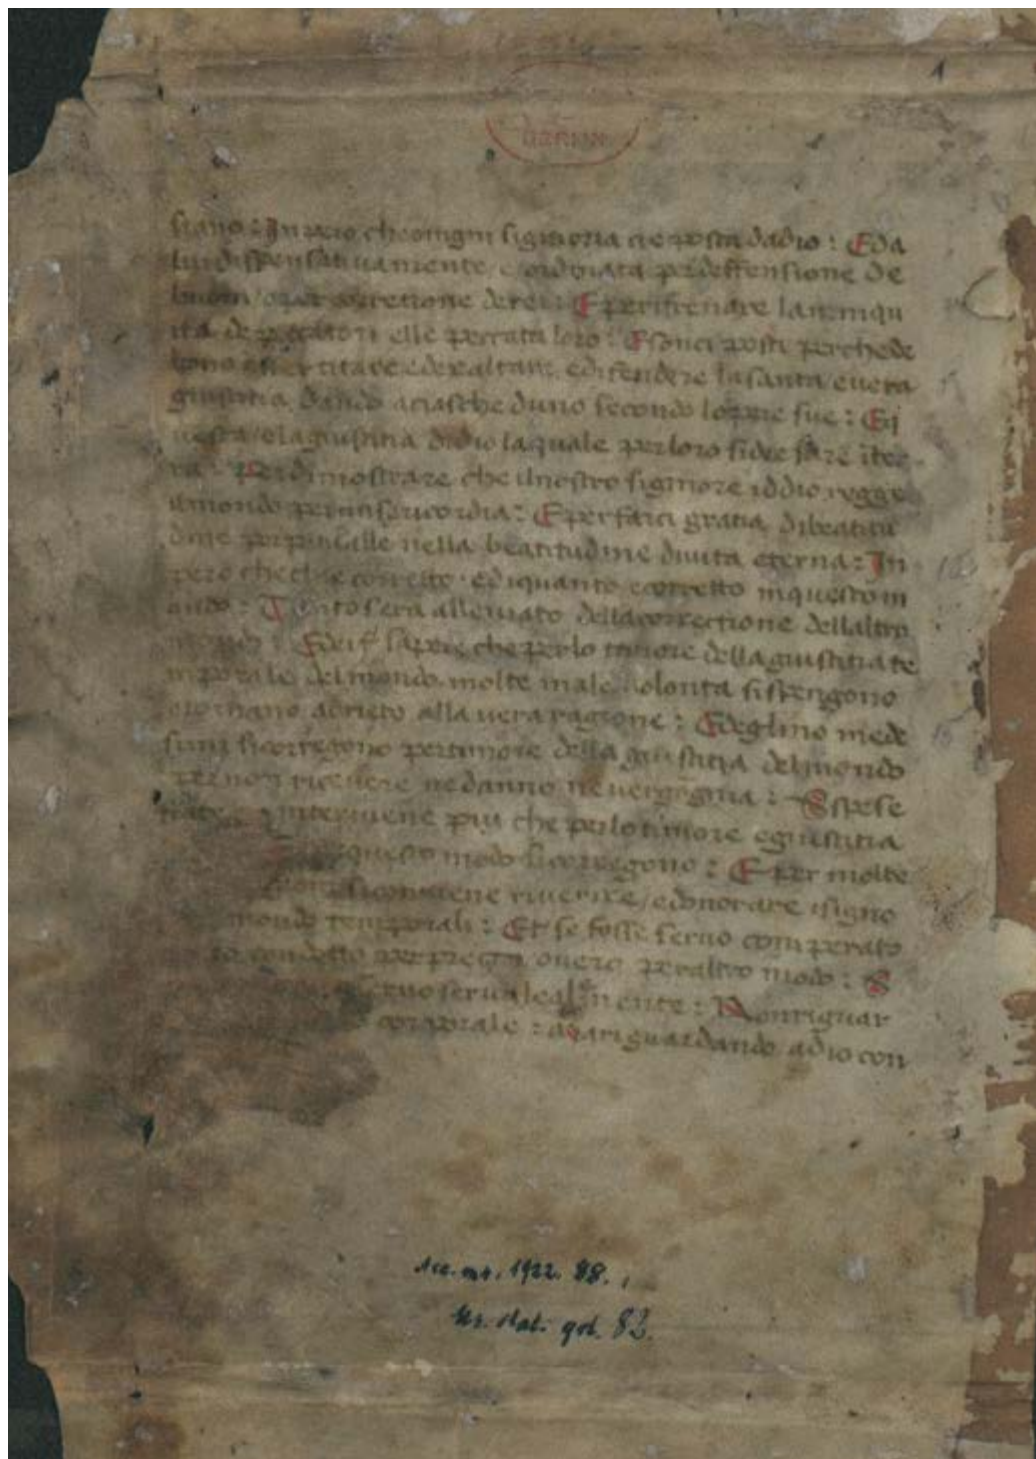 siano : Inpero cheongni signioria cie posta dadio : Eda
lui dispensativamente / e ordinata perdeffensione de
buoni / oper correttione derei : E perifrenare laniniqu
ita de peccatori elle peccata loro : Esonci posti perchede
bono essercitare edexaltare edifendere lasanta euera
giustitia dando aciasche duno secondo lopere sue : Eq
uesta elagiustitia didio laquale perloro sidee fare iter
ra : Per dimostrare che ilnostro signiore iddio regge
ilmondo permisericordia : E perfarci gratia dibeatitu
dine nella beatitudine diuita eterna : In
pero che chie corretto · ediquanto ecorretto inquesto m
ondo : Tanto sera alleuiato dellacorrectione dellaltro
mondo : sapere che perlo timore della giustitia te
mporale delmondo molte male uolonta sispengono
adrieto alla uera ragione : Edeglino mede
simi sicorregono pertimore della giustitia delmondo
per non riceuere nedanno ne uergognia : Espese
interuiene piu che perlo timore egiustitia
questo modo sicorregono : E per molte
siconuiene riuerire / edonorare isigno
mondo temporali : Et se fosse seruo comperato
condotto per pregio / ouero peraltro modo : S
seruo serua lealmente : Nonriguar
corporale : ariguardando adio con
Acc. ms. 1922. 88.
Ms. ital. qrt. 82.